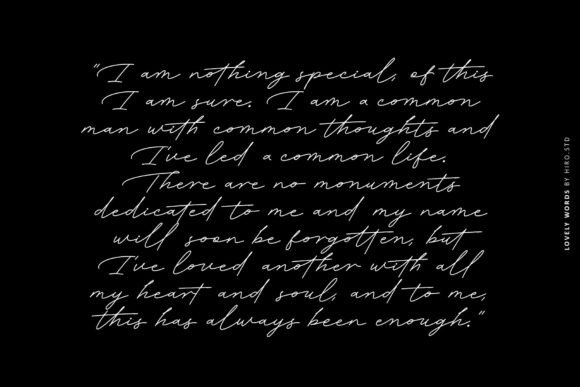 "I am nothing special, of this
I am sure. I am a common
man with common thoughts and
I've led a common life.
There are no monuments
dedicated to me and my name
will soon be forgotten, but
I've loved another with all
my heart and soul, and to me,
this has always been enough."
LOVELY WORDS BY HIRO.STD